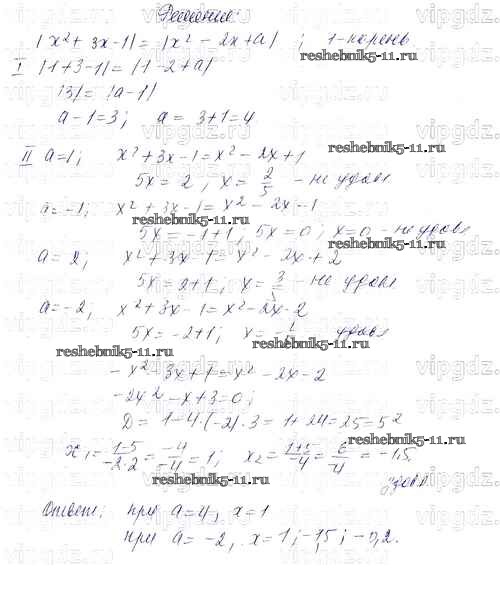 Решение:
|x² + 3x - 1| = |x² - 2x + a| ; 1 - корень
I |1 + 3 - 1| = |1 - 2 + a|
|3| = |a - 1|
a - 1 = 3; a = 3 + 1 = 4
reshebnik5-11.ru
II a = 1; x² + 3x - 1 = x² - 2x + 1
5x = 2, x = 2/5 - не удовл
reshebnik5-11.ru
a = -1; x² + 3x - 1 = x² - 2x - 1
reshebnik5-11.ru
5x = -1 + 1, 5x = 0; x = 0 - не удовл
reshebnik5-11.ru
a = 2; x² + 3x - 1 = x² - 2x + 2
5x = 2 + 1; x = 3/5 - не удовл
a = -2, x² + 3x - 1 = x² - 2x - 2
5x = -2 + 1; x = -1/5 удовл
reshebnik5-11.ru reshebnik5-11.ru
-x² - 3x + 1 = x² - 2x - 2
-2x² - x + 3 = 0;
D = 1 - 4·(-2)·3 = 1 + 24 = 25 = 5²
reshebnik5-11.ru
x₁ = (1-5)/(-2·2) = -4/-4 = 1; x₂ = (1+5)/-4 = 6/-4 = -1,5
reshebnik5-11.ru
удовл
Ответ: при a = 4, x = 1
при a = -2, x = 1; -1,5; -0,2.